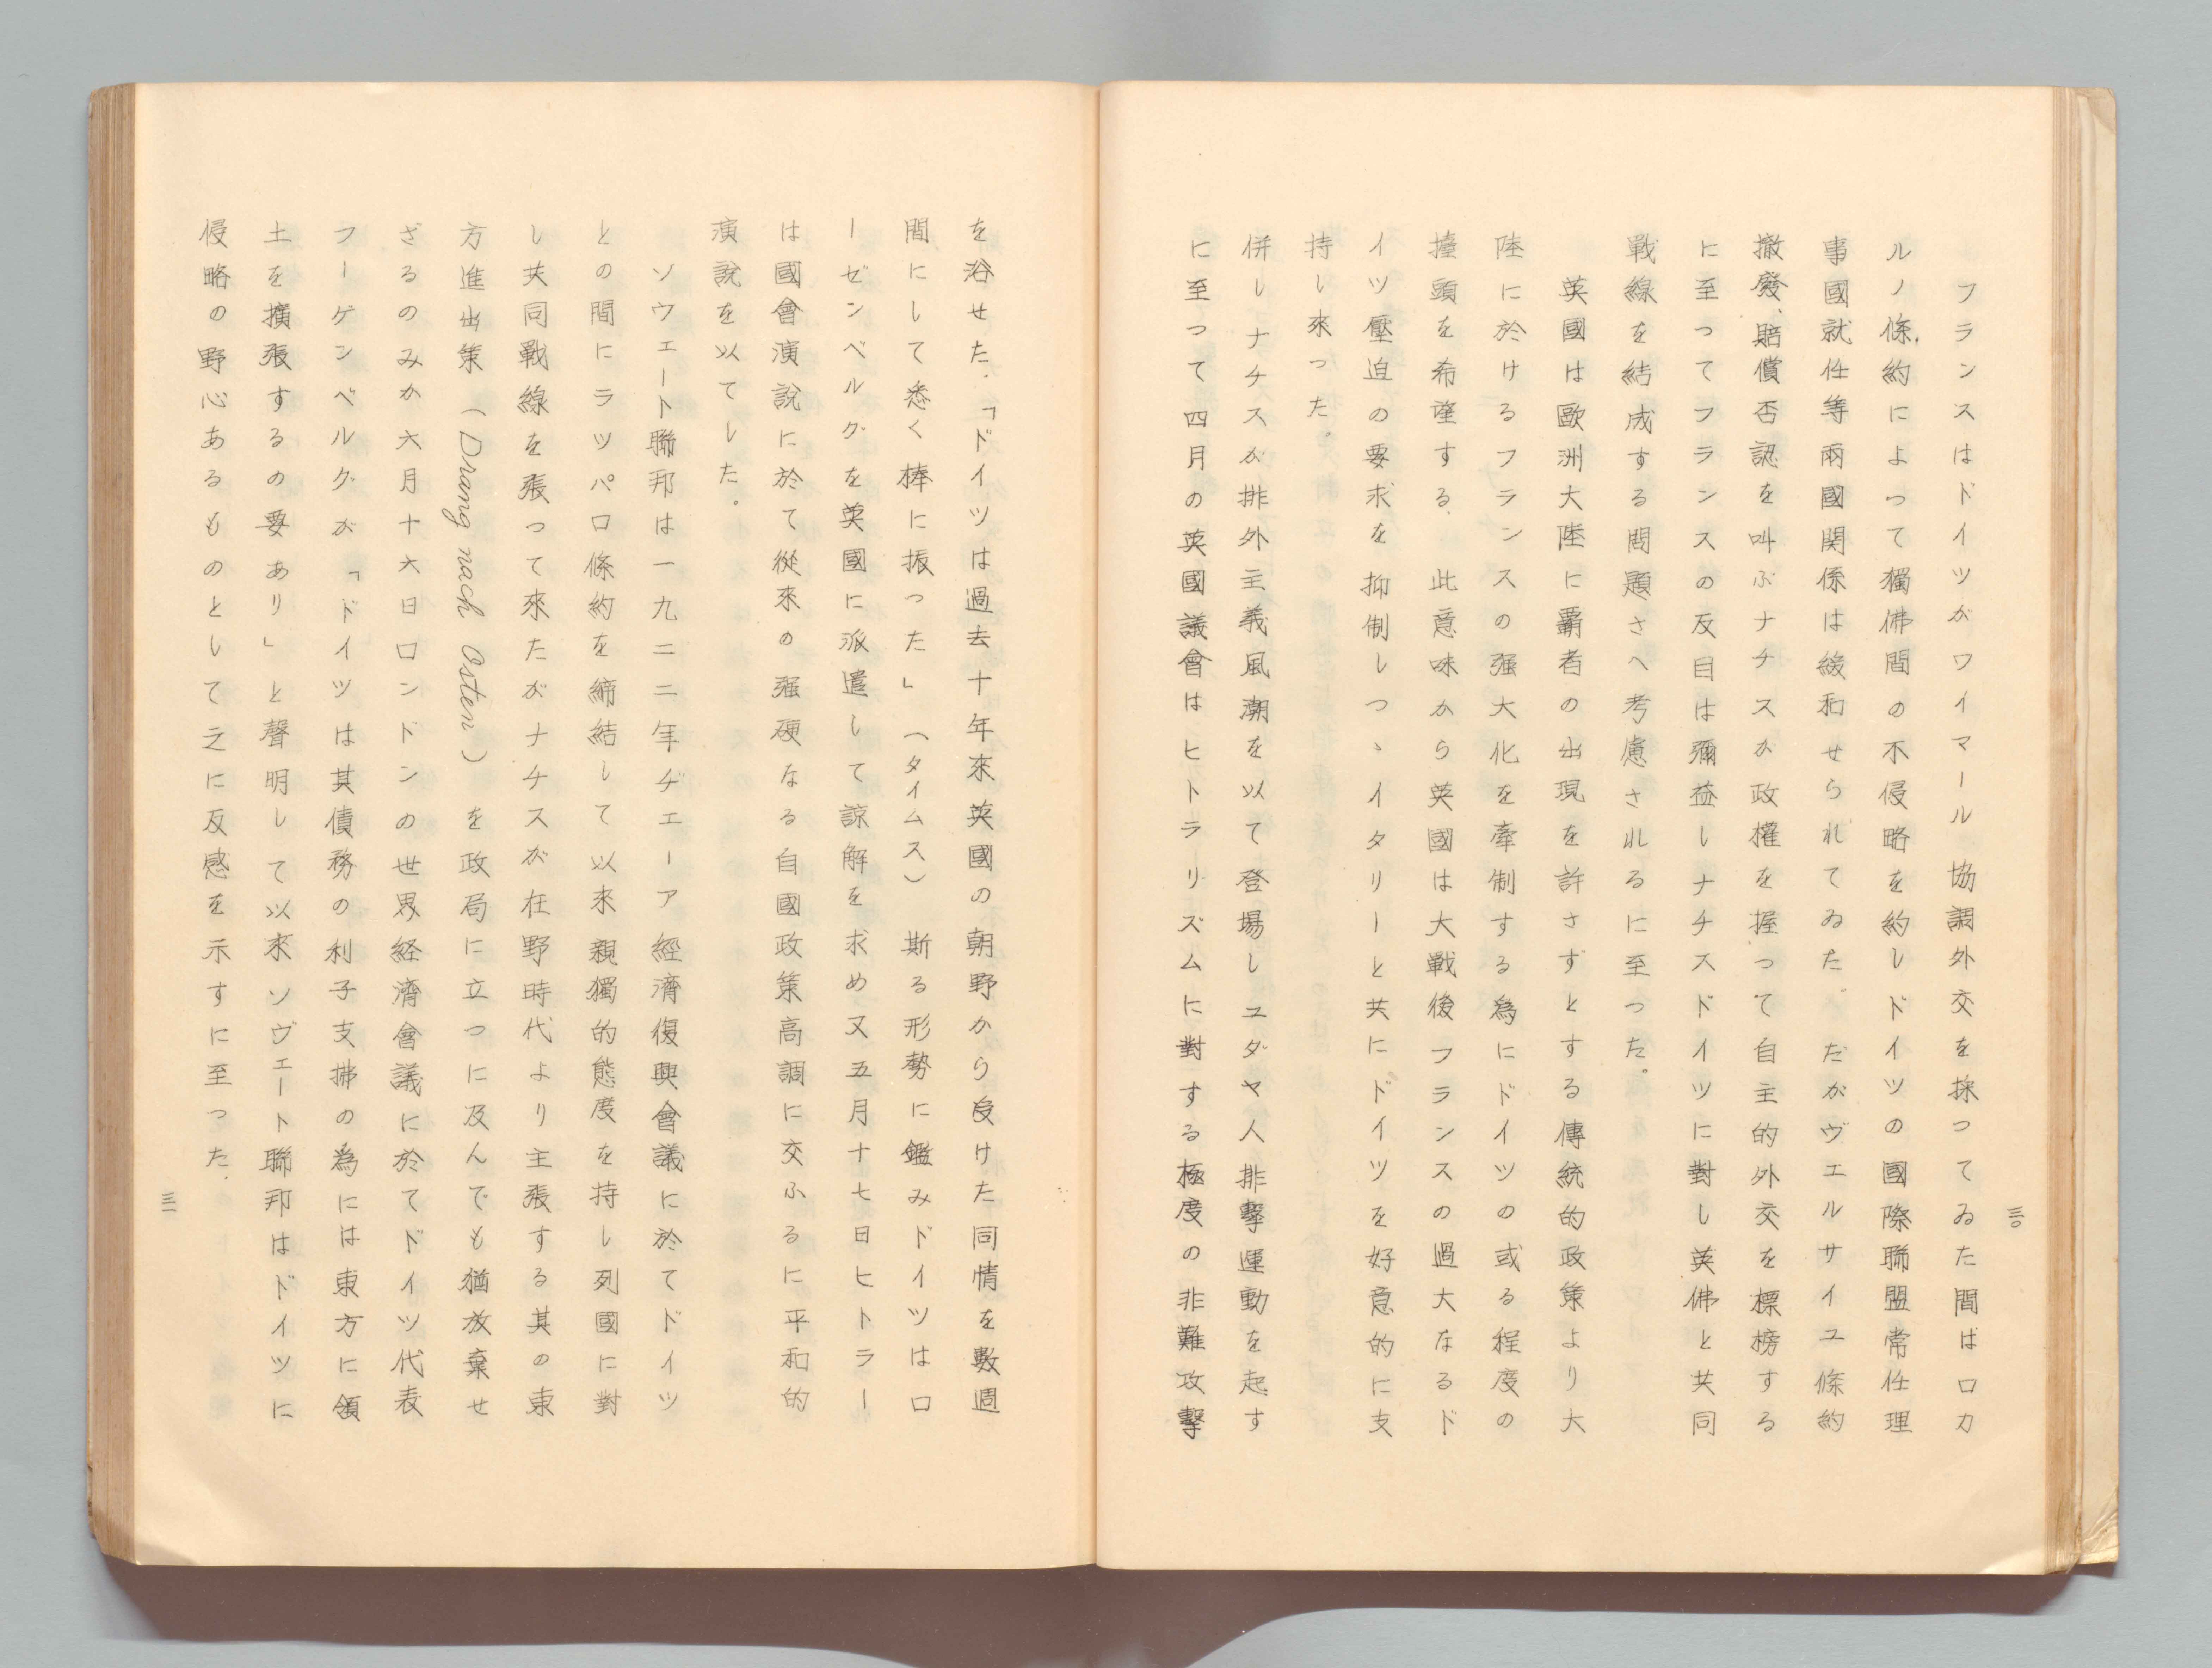 フランスはドイツがワイマール協調外交を採つてゐた間はロカ
ルノ條約によつて獨佛間の不侵略を約しドイツの國際聯盟常任理
事國就任等兩國関係は緩和せられてゐた。だがヴエルサイユ條約
撤廢、賠償否認を叫ぶナチスが政權を握つて自主的外交を標榜する
に至つてフランスの反目は彌益しナチスドイツに對し英佛と共同
戰線を結成する問題さへ考慮されるに至つた。
英國は歐洲大陸に覇者の出現を許さずとする傳統的政策より大
陸に於けるフランスの强大化を牽制する爲にドイツの或る程度の
擡頭を希望する.此意味から英國は大戰後フランスの過大なるド
イツ壓迫の要求を抑制しつゝイタリーと共にドイツを好意的に支
持し來つた。
併しナチスが排外主義風潮を以て登場しユダヤ人排擊運動を起す
に至つて四月の英國議會はヒトラリズムに對する極度の非難攻擊
三〇
を浴せた.「ドイツは過去十年來英國の朝野から受けた同情を數週
間にして悉く棒に振つた」(タイムス)斯る形勢に鑑みドイツはロ
ーゼンベルグを英國に派遣して諒解を求め又五月十七日ヒトラー
は國會演說に於て從來の强硬なる自國政策高調に交ふるに平和的
演說を以てした。
ソウェート聯邦は一九二二年ヂエーア經濟復興會議に於てドイツ
との間にラツパロ條約を締結して以来親獨的態度を持し列國に對
し共同戰線を張つて來たがナチスが在野時代より主張する其の東
方進出策(Drang nach Osten)を政局に立つに及んでも猶放棄せ
ざるのみか六月十六日ロンドンの世界経濟會議に於てドイツ代表
フーゲンベルグが「ドイツは其債務の利子支拂の為には東方に領
土を擴張するの要あり」と聲明して以來ソヴェート聯邦はドイツに
侵略の野心あるものとして之に反感を示すに至つた.
三一